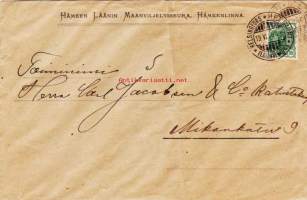 Hämeen Läänin Maanviljelysseura, Hämeenlinna.
Toiminimi
Herra Carl Jacobsen & Co
Mikonkatu 9